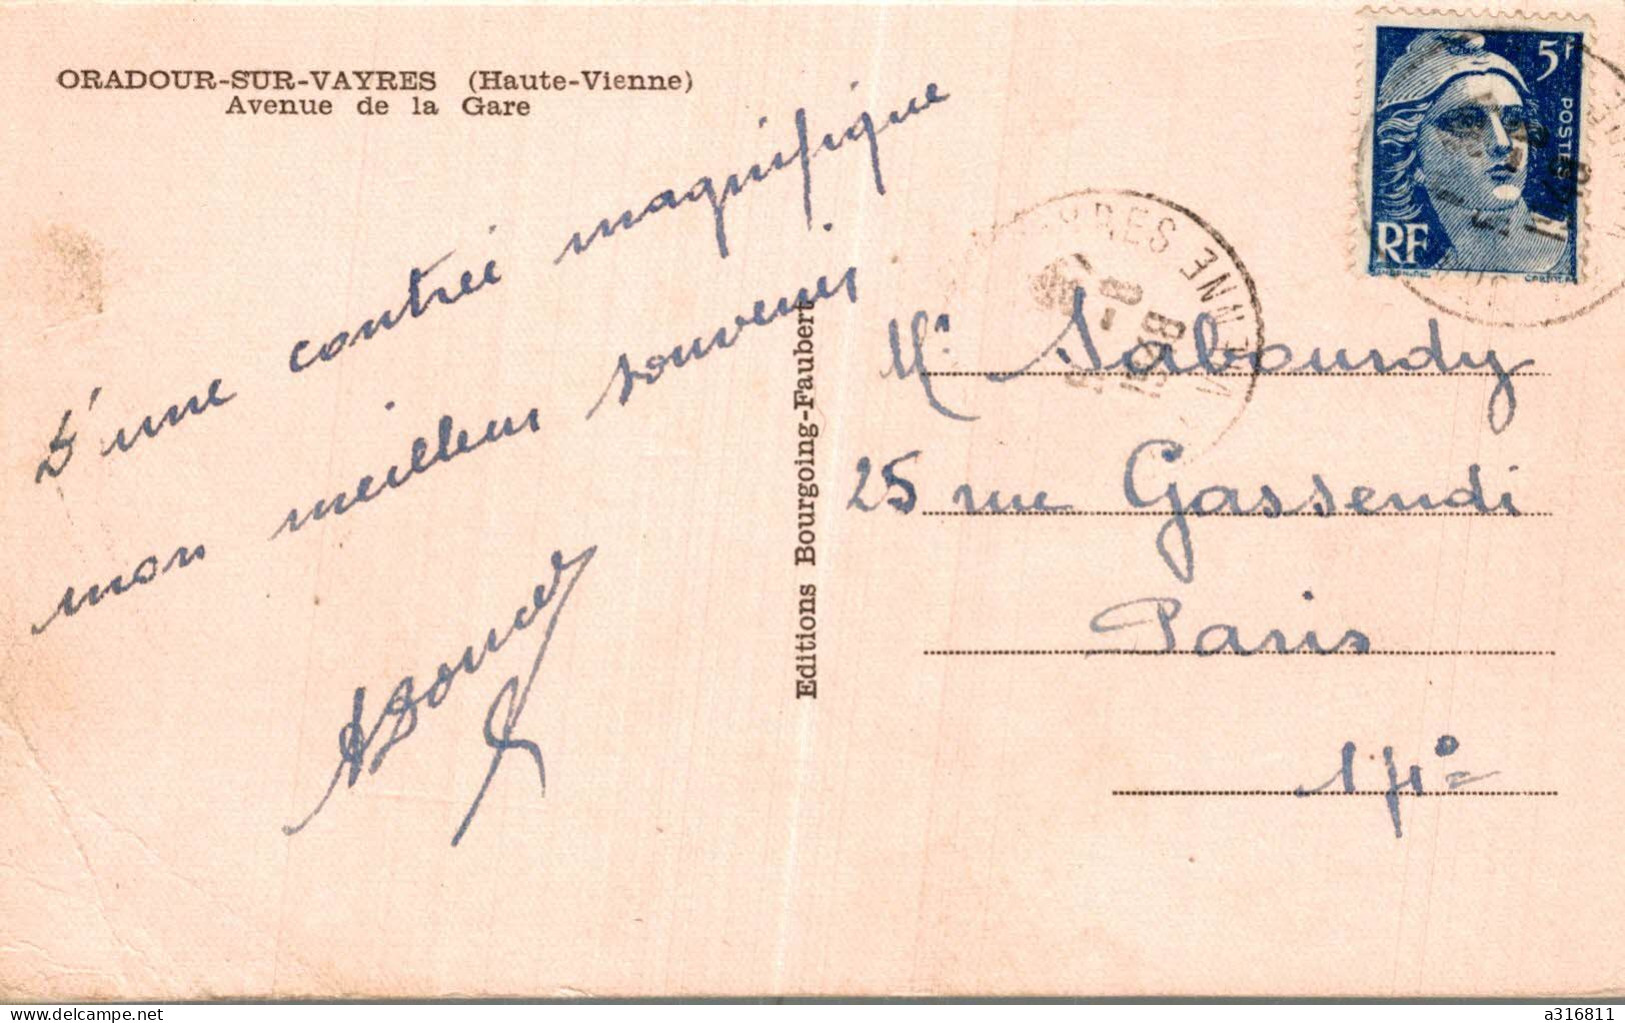 ORADOUR-SUR-VAYRES (Haute-Vienne)
Avenue de la Gare
D'une contrée magnifique
mon meilleur souvenir
Editions Bourgoing-Faubert
5F
POSTES
RF
YRES
VIENNE
8-8
1948
Mr Sabourdy
25 rue Gassendi
Paris
14e
a316811